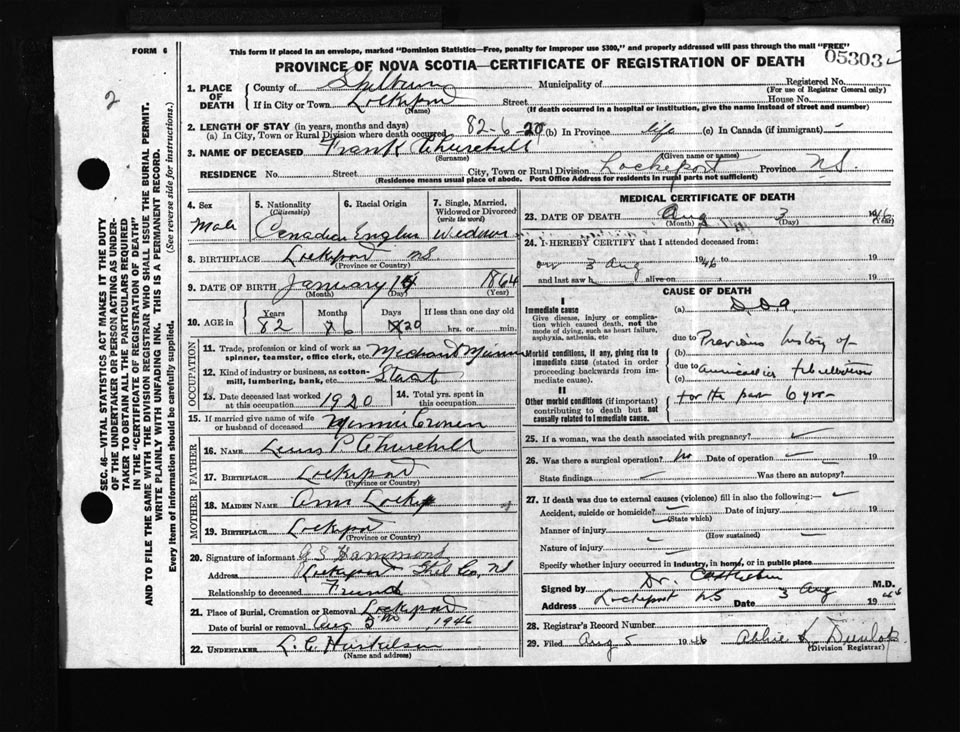 FORM 6
This form if placed in an envelope, marked "Dominion Statistics—Free, penalty for improper use $300," and properly addressed will pass through the mail "FREE"
PROVINCE OF NOVA SCOTIA—CERTIFICATE OF REGISTRATION OF DEATH
05303
2
SEC. 46—VITAL STATISTICS ACT MAKES IT THE DUTY
OF THE UNDERTAKER OR PERSON ACTING AS UNDER-
TAKER TO OBTAIN ALL THE PARTICULARS REQUIRED
IN THE "CERTIFICATE OF REGISTRATION OF DEATH"
AND TO FILE THE SAME WITH THE DIVISION REGISTRAR WHO SHALL ISSUE THE BURIAL PERMIT.
WRITE PLAINLY WITH UNFADING INK. THIS IS A PERMANENT RECORD.
Every item of information should be carefully supplied. (See reverse side for instructions.)
1. PLACE OF DEATH
County of Shelburne Municipality of Registered No.
(For use of Registrar General only)
If in City or Town Lockeport Street House No.
(Name) (If death occurred in a hospital or institution, give the name instead of street and number)
2. LENGTH OF STAY (in years, months and days)
(a) In City, Town or Rural Division where death occurred 82-6-20 (b) In Province life (c) In Canada (if immigrant) -
3. NAME OF DECEASED Frank Churchill
(Surname) (Given name or names)
RESIDENCE No. Street City, Town or Rural Division Lockeport Province NS
(Residence means usual place of abode. Post Office Address for residents in rural parts not sufficient)
4. Sex Male
5. Nationality (Citizenship) Canadian
6. Racial Origin English
7. Single, Married, Widowed or Divorced (write the word) Widower
8. BIRTHPLACE Lockeport NS
(Province or Country)
9. DATE OF BIRTH January 14 1864
(Month) (Day) (Year)
10. AGE in Years Months Days If less than one day old
82 6 20 hrs. or min.
OCCUPATION
11. Trade, profession or kind of work as spinner, teamster, office clerk, etc.
12. Kind of industry or business, as cotton-mill, lumbering, bank, etc.
13. Date deceased last worked at this occupation 1920
14. Total yrs. spent in this occupation
15. If married give name of wife or husband of deceased Minnie
FATHER
16. NAME P. Churchill
17. BIRTHPLACE Lockeport
(Province or Country)
MOTHER
18. MAIDEN NAME Ann Locke
19. BIRTHPLACE Lockeport
(Province or Country)
20. Signature of informant Hammond
Address Lockeport Shel Co, NS
Relationship to deceased Friend
21. Place of Burial, Cremation or Removal Lockeport
Date of burial or removal Aug 5 1946
22. UNDERTAKER L. C.
(Name and address)
MEDICAL CERTIFICATE OF DEATH
23. DATE OF DEATH Aug 3 1946
(Month) (Day) (Year)
24. I HEREBY CERTIFY that I attended deceased from:
on 3 Aug 1946 to 19
and last saw h alive on 19
CAUSE OF DEATH
I
Immediate cause
Give disease, injury or complication which caused death, not the mode of dying, such as heart failure, asphyxia, asthenia, etc
(a) D.O.A
due to Previous history of
Morbid conditions, if any, giving rise to immediate cause (stated in order proceeding backwards from immediate cause).
(b)
due to auricular fibrillation
(c)
for the past 6 yrs
II
Other morbid conditions (if important) contributing to death but not causally related to immediate cause.
25. If a woman, was the death associated with pregnancy?
26. Was there a surgical operation? No Date of operation
State findings Was there an autopsy?
27. If death was due to external causes (violence) fill in also the following:—
Accident, suicide or homicide? Date of injury 19
(State which)
Manner of injury
(How sustained)
Nature of injury
Specify whether injury occurred in industry, in home, or in public place
Signed by Dr. M.D.
Address Lockeport NS Date 3 Aug 1946
28. Registrar's Record Number
29. Filed Aug 5 1946 Abbie L. Dunlop
(Division Registrar)